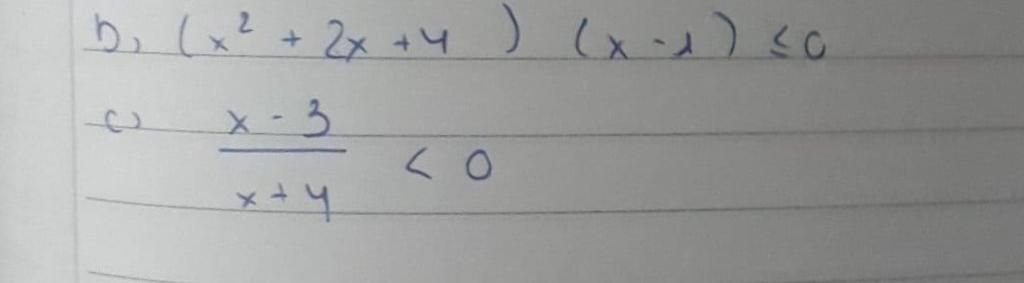 b, (x² + 2x + 4) (x - 1) ≤ 0
c) x - 3 / x + 4 < 0